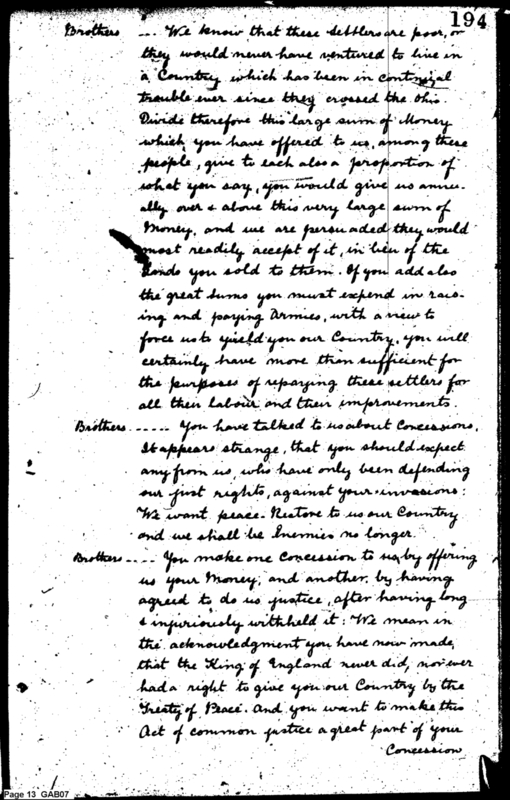 194
Brothers --- We know that these Settlers are poor, or
they would never have ventured to live in
a Country which has been in continual
trouble ever since they crossed the Ohio.
Divide therefore this large sum of Money
which you have offered to us, among these
people, give to each also a proportion of
what you say, you would give us annu-
ally over & above this very large sum of
Money, and we are persuaded they would
most readily accept of it, in lieu of the
Lands you sold to them. If you add also
the great Sums you must expend in rais-
ing and paying Armies, with a view to
force us to yield you our Country, you will
certainly have more than sufficient for
the purposes of repaying these settlers for
all their labour and their improvements.
Brothers ----- You have talked to us about Concessions.
It appears strange, that you should expect
any from us, who have only been defending
our just rights, against your invasions:
We want peace. Restore to us our Country
and we shall be Enemies no longer.
Brothers ---- You make one Concession to us, by offering
us your Money, and another, by having
agreed to do us justice, after having long
& injuriously withheld it: We mean in
the acknowledgment you have now made,
that the King of England never did, nor ever
had a right to give you our Country by the
Treaty of Peace. And you want to make this
Act of common justice a great part of your
Concession
Page 13 GAB07